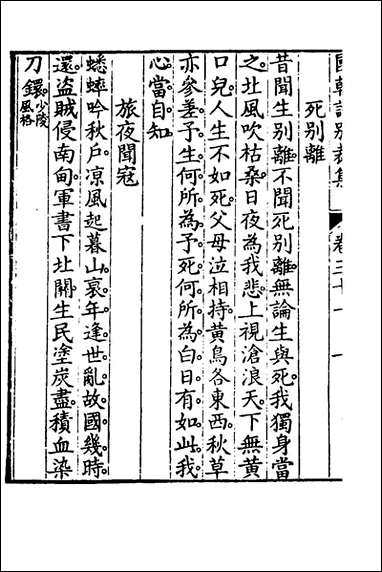 國朝詩別裁集 卷三十一 一
死別離
昔聞生別離。不聞死別離。無論生與死。我獨身當
之。北風吹枯桑。日夜為我悲。上視滄浪天。下無黃
口兒。人生不如死。父母泣相持。黃鳥各東西。秋草
亦參差。予生何所為。予死何所為。白日有如此。我
心當自知。
旅夜聞寇
蟋蟀吟秋戶。凉風起暮山。衰年逢世亂。故國幾時
還。盜賊侵南甸。軍書下北關。生民塗炭盡。積血染
刀鐶。少陵風格